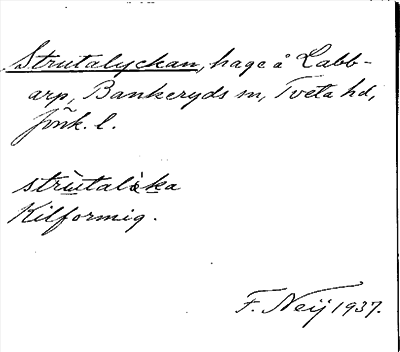 Strutalyckan, hage å Labb-
arp, Bankeryds sn, Tveta hd,
Jönk. l.
strutalika
Kilformig.
F. Neij 1937.